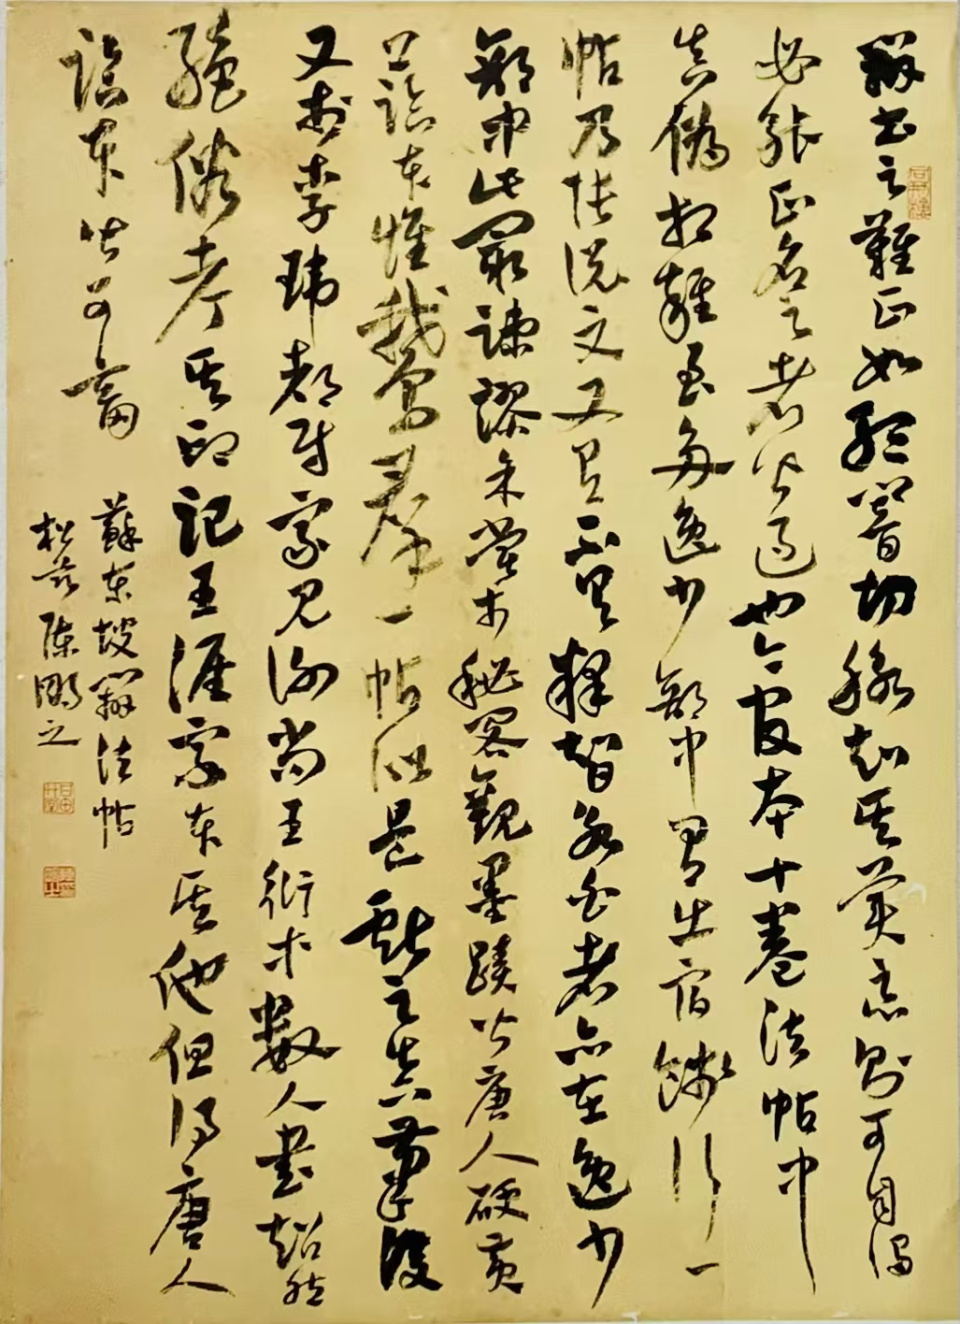 辨書之難正如聽響切脉知其美惡則可自謂
必能正名之者皆過也今官本十卷法帖中
真偽相雜至多逸少部中有出宿餞行一
帖乃張説文又有不具釋智永白者亦在逸少
部中此最疎謬余嘗於秘閣觀墨蹟皆唐人硬黄
上臨本惟鵝羣一帖似是獻之真筆後
又於李瑋都尉家見謝尚王衍等數人書超然
絶俗考其印記王涯家本其他但得唐人
臨本皆可蓄
蘇東坡辨法帖
松茲陳鵬之